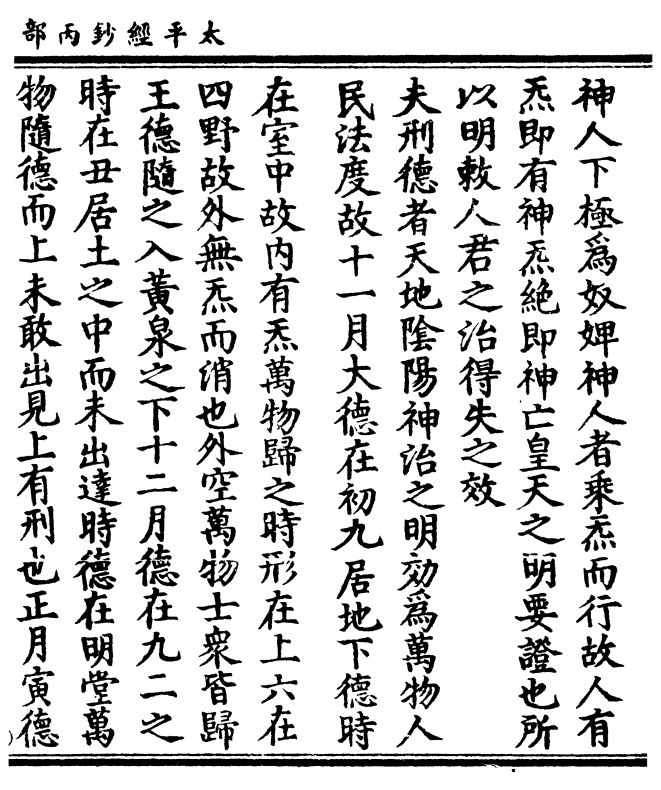 太平經鈔丙部
神人下極爲奴婢神人者乘炁而行故人有
炁即有神炁絕即神亡皇天之明要證也所
以明敕人君之治得失之效
夫刑德者天地陰陽神治之明効爲萬物人
民法度故十一月大德在初九居地下德時
在室中故内有炁萬物歸之時形在上六在
四野故外無炁而消也外空萬物士衆皆歸
王德隨之入黃泉之下十二月德在九二之
時在丑居土之中而未出達時德在明堂萬
物隨德而上未敢出見上有刑也正月寅德